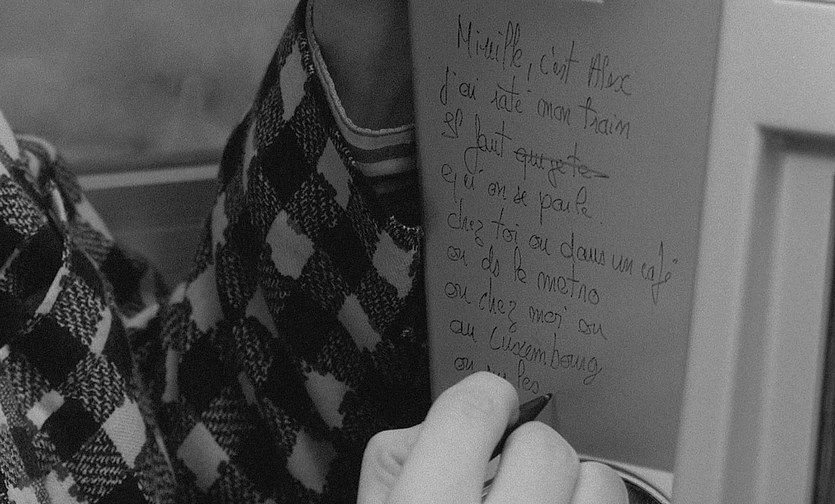 Mireille, c'est Alex
j'ai raté mon train
Il faut
qu'on se parle
chez toi ou dans un café
ou ds le metro
ou chez moi ou
au Luxembourg
ou sur les